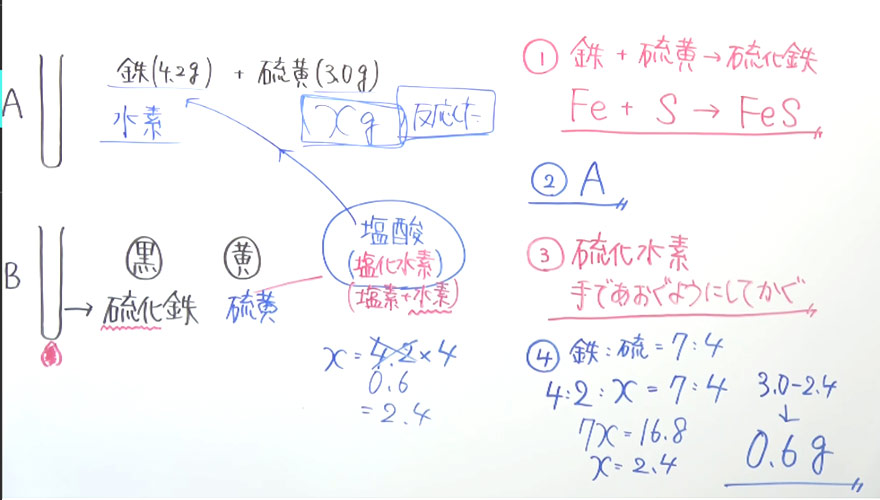 A
鉄(4.2g) + 硫黄(3.0g)
水素
xg 反応した
塩酸
(塩化水素)
(塩素+水素)
B
黒 黄
→ 硫化鉄 硫黄
x = 4.2 × 4
0.6
= 2.4
① 鉄 + 硫黄 → 硫化鉄
Fe + S → FeS
② A
③ 硫化水素
手であおぐようにしてかぐ
④ 鉄:硫 = 7:4
4:2:x = 7:4
7x = 16.8
x = 2.4
3.0-2.4
↓
0.6g